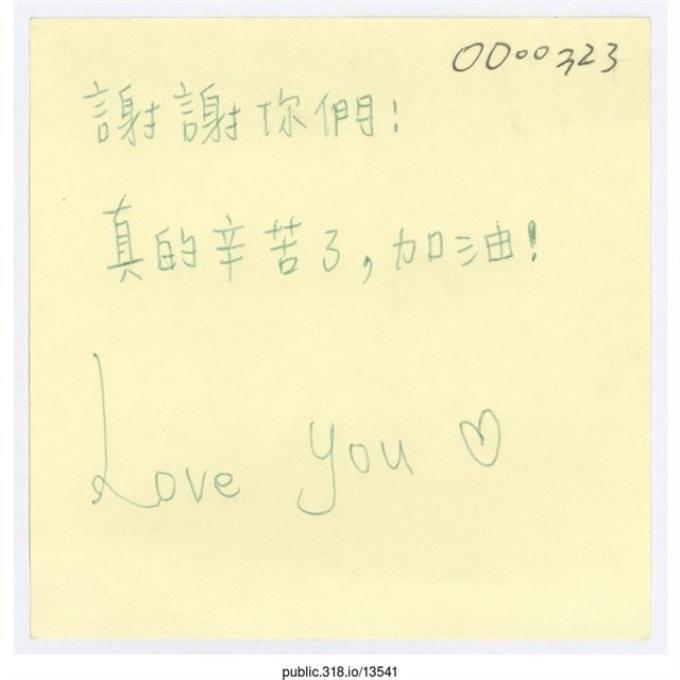 0000323
謝謝你們!
真的辛苦了,加油!
Love you ♡
public.318.io/13541